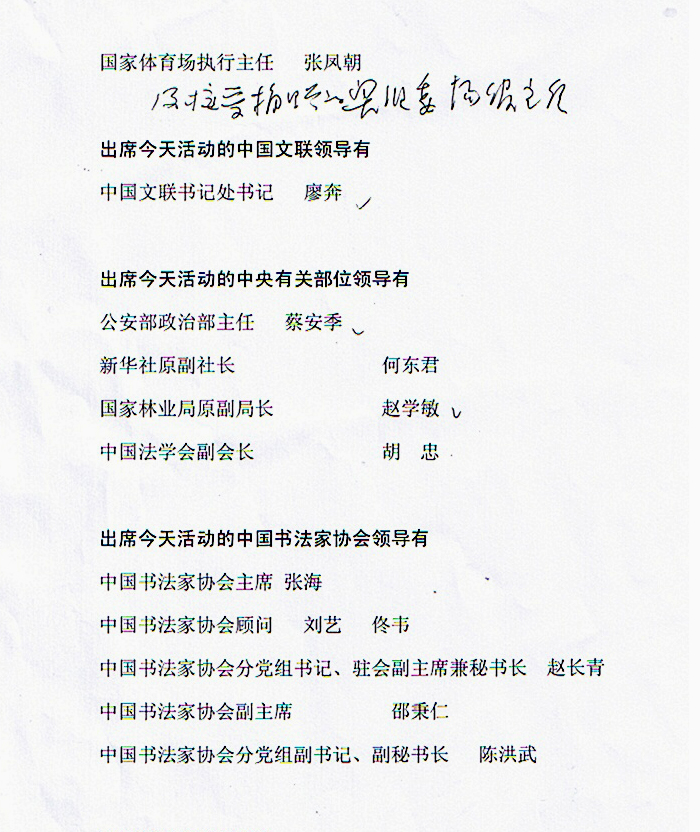 国家体育场执行主任 张凤朝
出席今天活动的中国文联领导有
中国文联书记处书记 廖奔
出席今天活动的中央有关部位领导有
公安部政治部主任 蔡安季
新华社原副社长 何东君
国家林业局原副局长 赵学敏
中国法学会副会长 胡 忠
出席今天活动的中国书法家协会领导有
中国书法家协会主席 张海
中国书法家协会顾问 刘艺 佟韦
中国书法家协会分党组书记、驻会副主席兼秘书长 赵长青
中国书法家协会副主席 邵秉仁
中国书法家协会分党组副书记、副秘书长 陈洪武